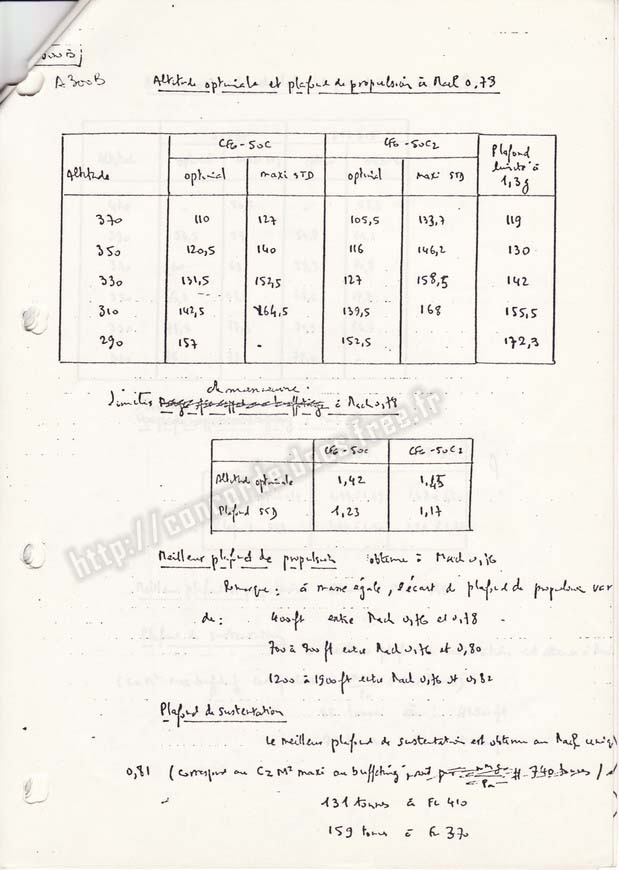 A300B Altitude optimale et plafond de propulsion à Mach 0,78
CF6-50C CF6-50C2 Plafond limité à 1,3g
Altitude optimal maxi STD optimal maxi STD
370 110 127 105,5 133,7 119
350 120,5 140 116 146,2 130
330 131,5 152,5 127 158,5 142
310 142,5 164,5 139,5 168 155,5
290 157 - 152,5 172,3
de manoeuvre.
Limites à Mach 0,78
CF6-50C CF6-50C2
Altitude optimale 1,42 1,45
Plafond STD 1,23 1,17
Meilleur plafond de propulsion obtenu à Mach 0,76
Remarque : à masse égale, l'écart de plafond de propulsion var
de : 400ft entre Mach 0,76 et 0,78
700 à 800ft entre Mach 0,76 et 0,80
1200 à 1900ft entre Mach 0,76 et 0,82
Plafond de sustentation
Le meilleur plafond de sustentation est obtenu au Mach
0,81 (correspond au CzM² maxi au buffeting # 740 tonnes
131 tonnes à FL 410
159 tonnes à FL 370
http://concorde.docs.free.fr